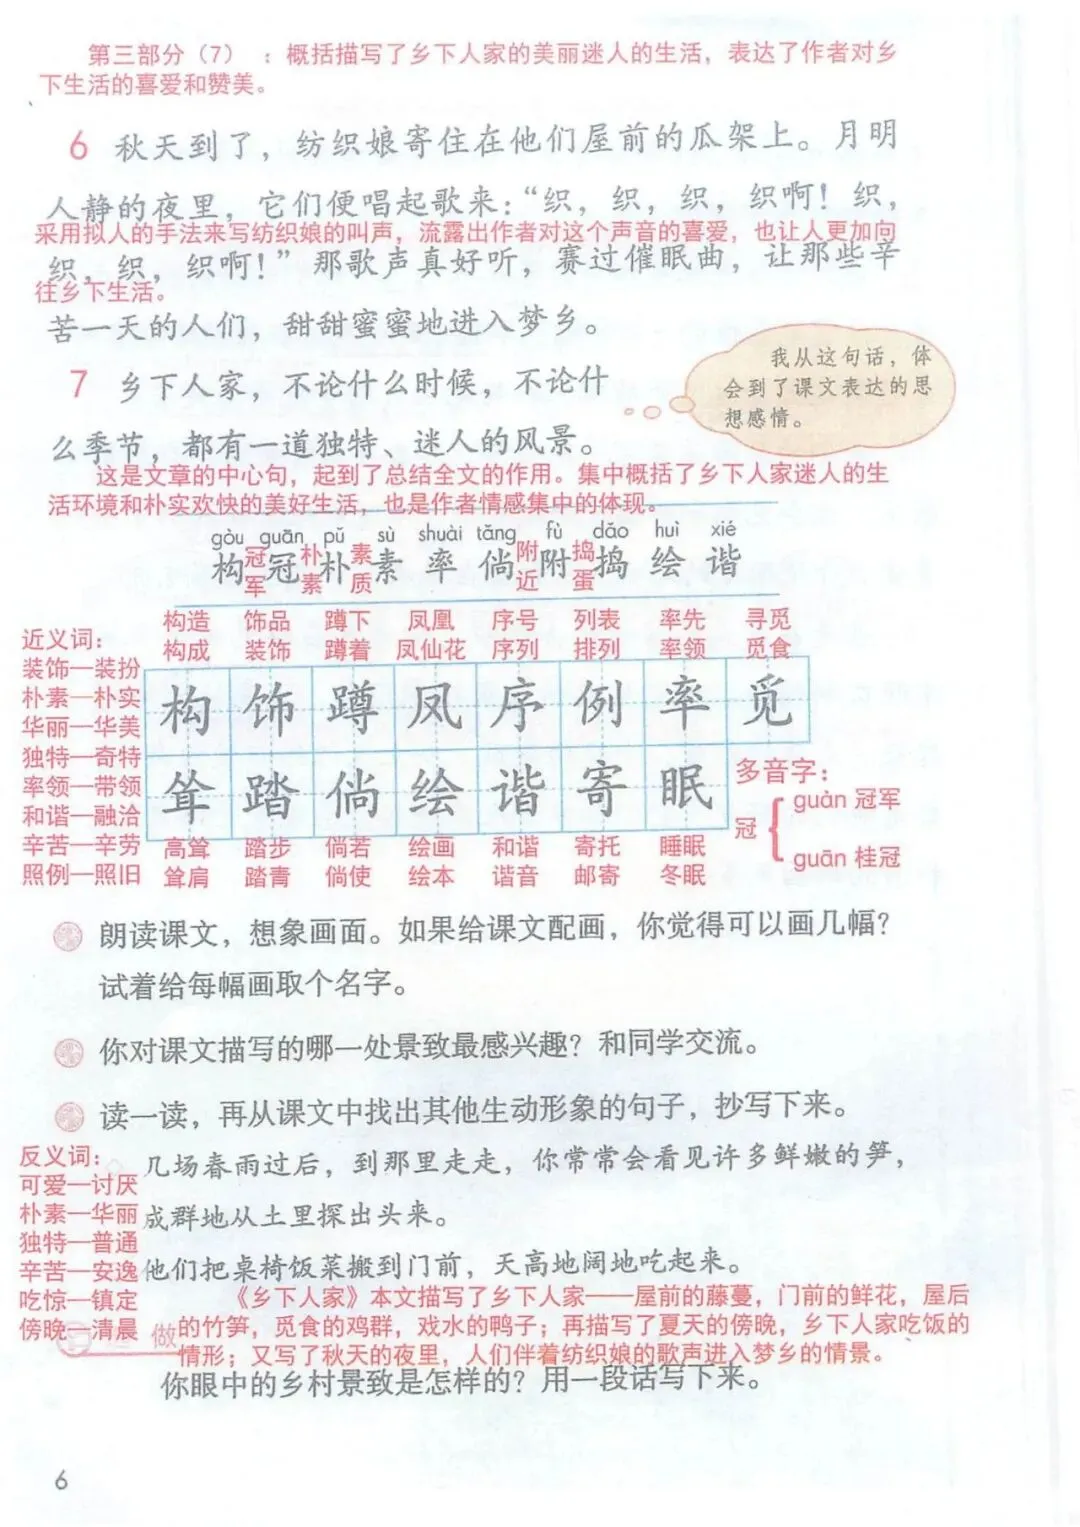 第三部分（7）：概括描写了乡下人家的美丽迷人的生活，表达了作者对乡
下生活的喜爱和赞美。
6 秋天到了，纺织娘寄住在他们屋前的瓜架上。月明
人静的夜里，它们便唱起歌来：“织，织，织，织啊！织，
采用拟人的手法来写纺织娘的叫声，流露出作者对这个声音的喜爱，也让人更加向
织，织，织啊！”那歌声真好听，赛过催眠曲，让那些辛
往乡下生活。
苦一天的人们，甜甜蜜蜜地进入梦乡。
我从这句话，体
会到了课文表达的思
想感情。
7 乡下人家，不论什么时候，不论什
么季节，都有一道独特、迷人的风景。
这是文章的中心句，起到了总结全文的作用。集中概括了乡下人家迷人的生
活环境和朴实欢快的美好生活，也是作者情感集中的体现。
gòu guān pǔ sù shuài tǎng fù dǎo huì xié
构 冠 朴 素 率 倘 附 捣 绘 谐
冠军 朴素 素质 附近 捣蛋
构造 饰品 蹲下 凤凰 序号 列表 率先 寻觅
构成 装饰 蹲着 凤仙花 序列 排列 率领 觅食
构 饰 蹲 凤 序 例 率 觅
耸 踏 倘 绘 谐 寄 眠
高耸 踏步 倘若 绘画 和谐 寄托 睡眠
耸肩 踏青 倘使 绘本 谐音 邮寄 冬眠
近义词：
装饰—装扮
朴素—朴实
华丽—华美
独特—奇特
率领—带领
和谐—融洽
辛苦—辛劳
照例—照旧
多音字：
冠
guàn 冠军
guān 桂冠
朗读课文，想象画面。如果给课文配画，你觉得可以画几幅？
试着给每幅画取个名字。
你对课文描写的哪一处景致最感兴趣？和同学交流。
读一读，再从课文中找出其他生动形象的句子，抄写下来。
几场春雨过后，到那里走走，你常常会看见许多鲜嫩的笋，
成群地从土里探出头来。
他们把桌椅饭菜搬到门前，天高地阔地吃起来。
反义词：
可爱—讨厌
朴素—华丽
独特—普通
辛苦—安逸
吃惊—镇定
傍晚—清晨
做
《乡下人家》本文描写了乡下人家——屋前的藤蔓，门前的鲜花，屋后
的竹笋，觅食的鸡群，戏水的鸭子；再描写了夏天的傍晚，乡下人家吃饭的
情形；又写了秋天的夜里，人们伴着纺织娘的歌声进入梦乡的情景。
你眼中的乡村景致是怎样的？用一段话写下来。
6